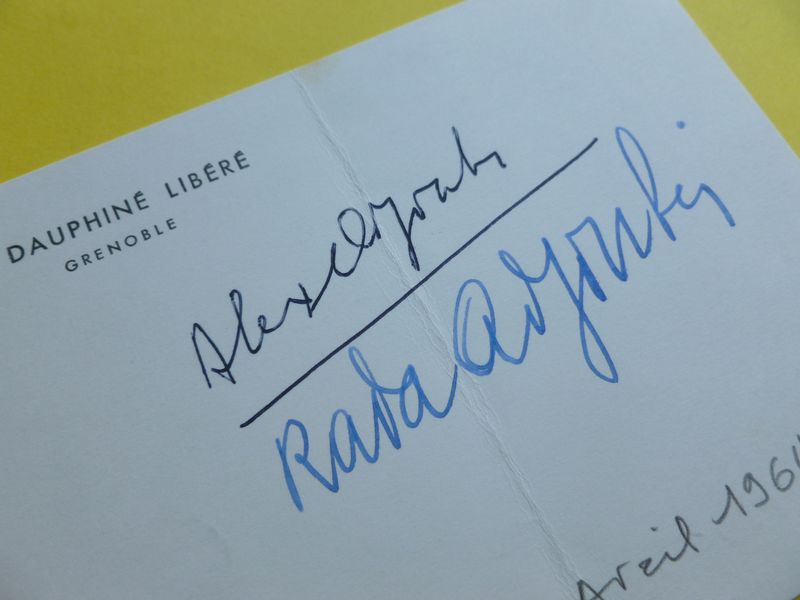 DAUPHINÉ LIBÉRÉ
GRENOBLE
Alex Adjoubi
Rada Adjoubëi
Avril 1964